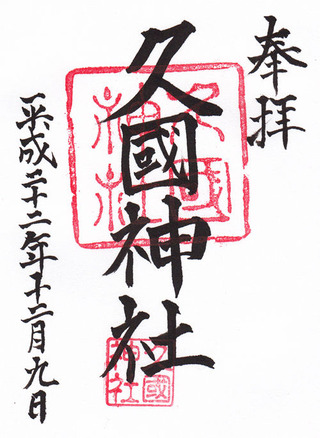 奉拝
久國神社
久國
神社
久國
神社
平成二十二年十二月九日